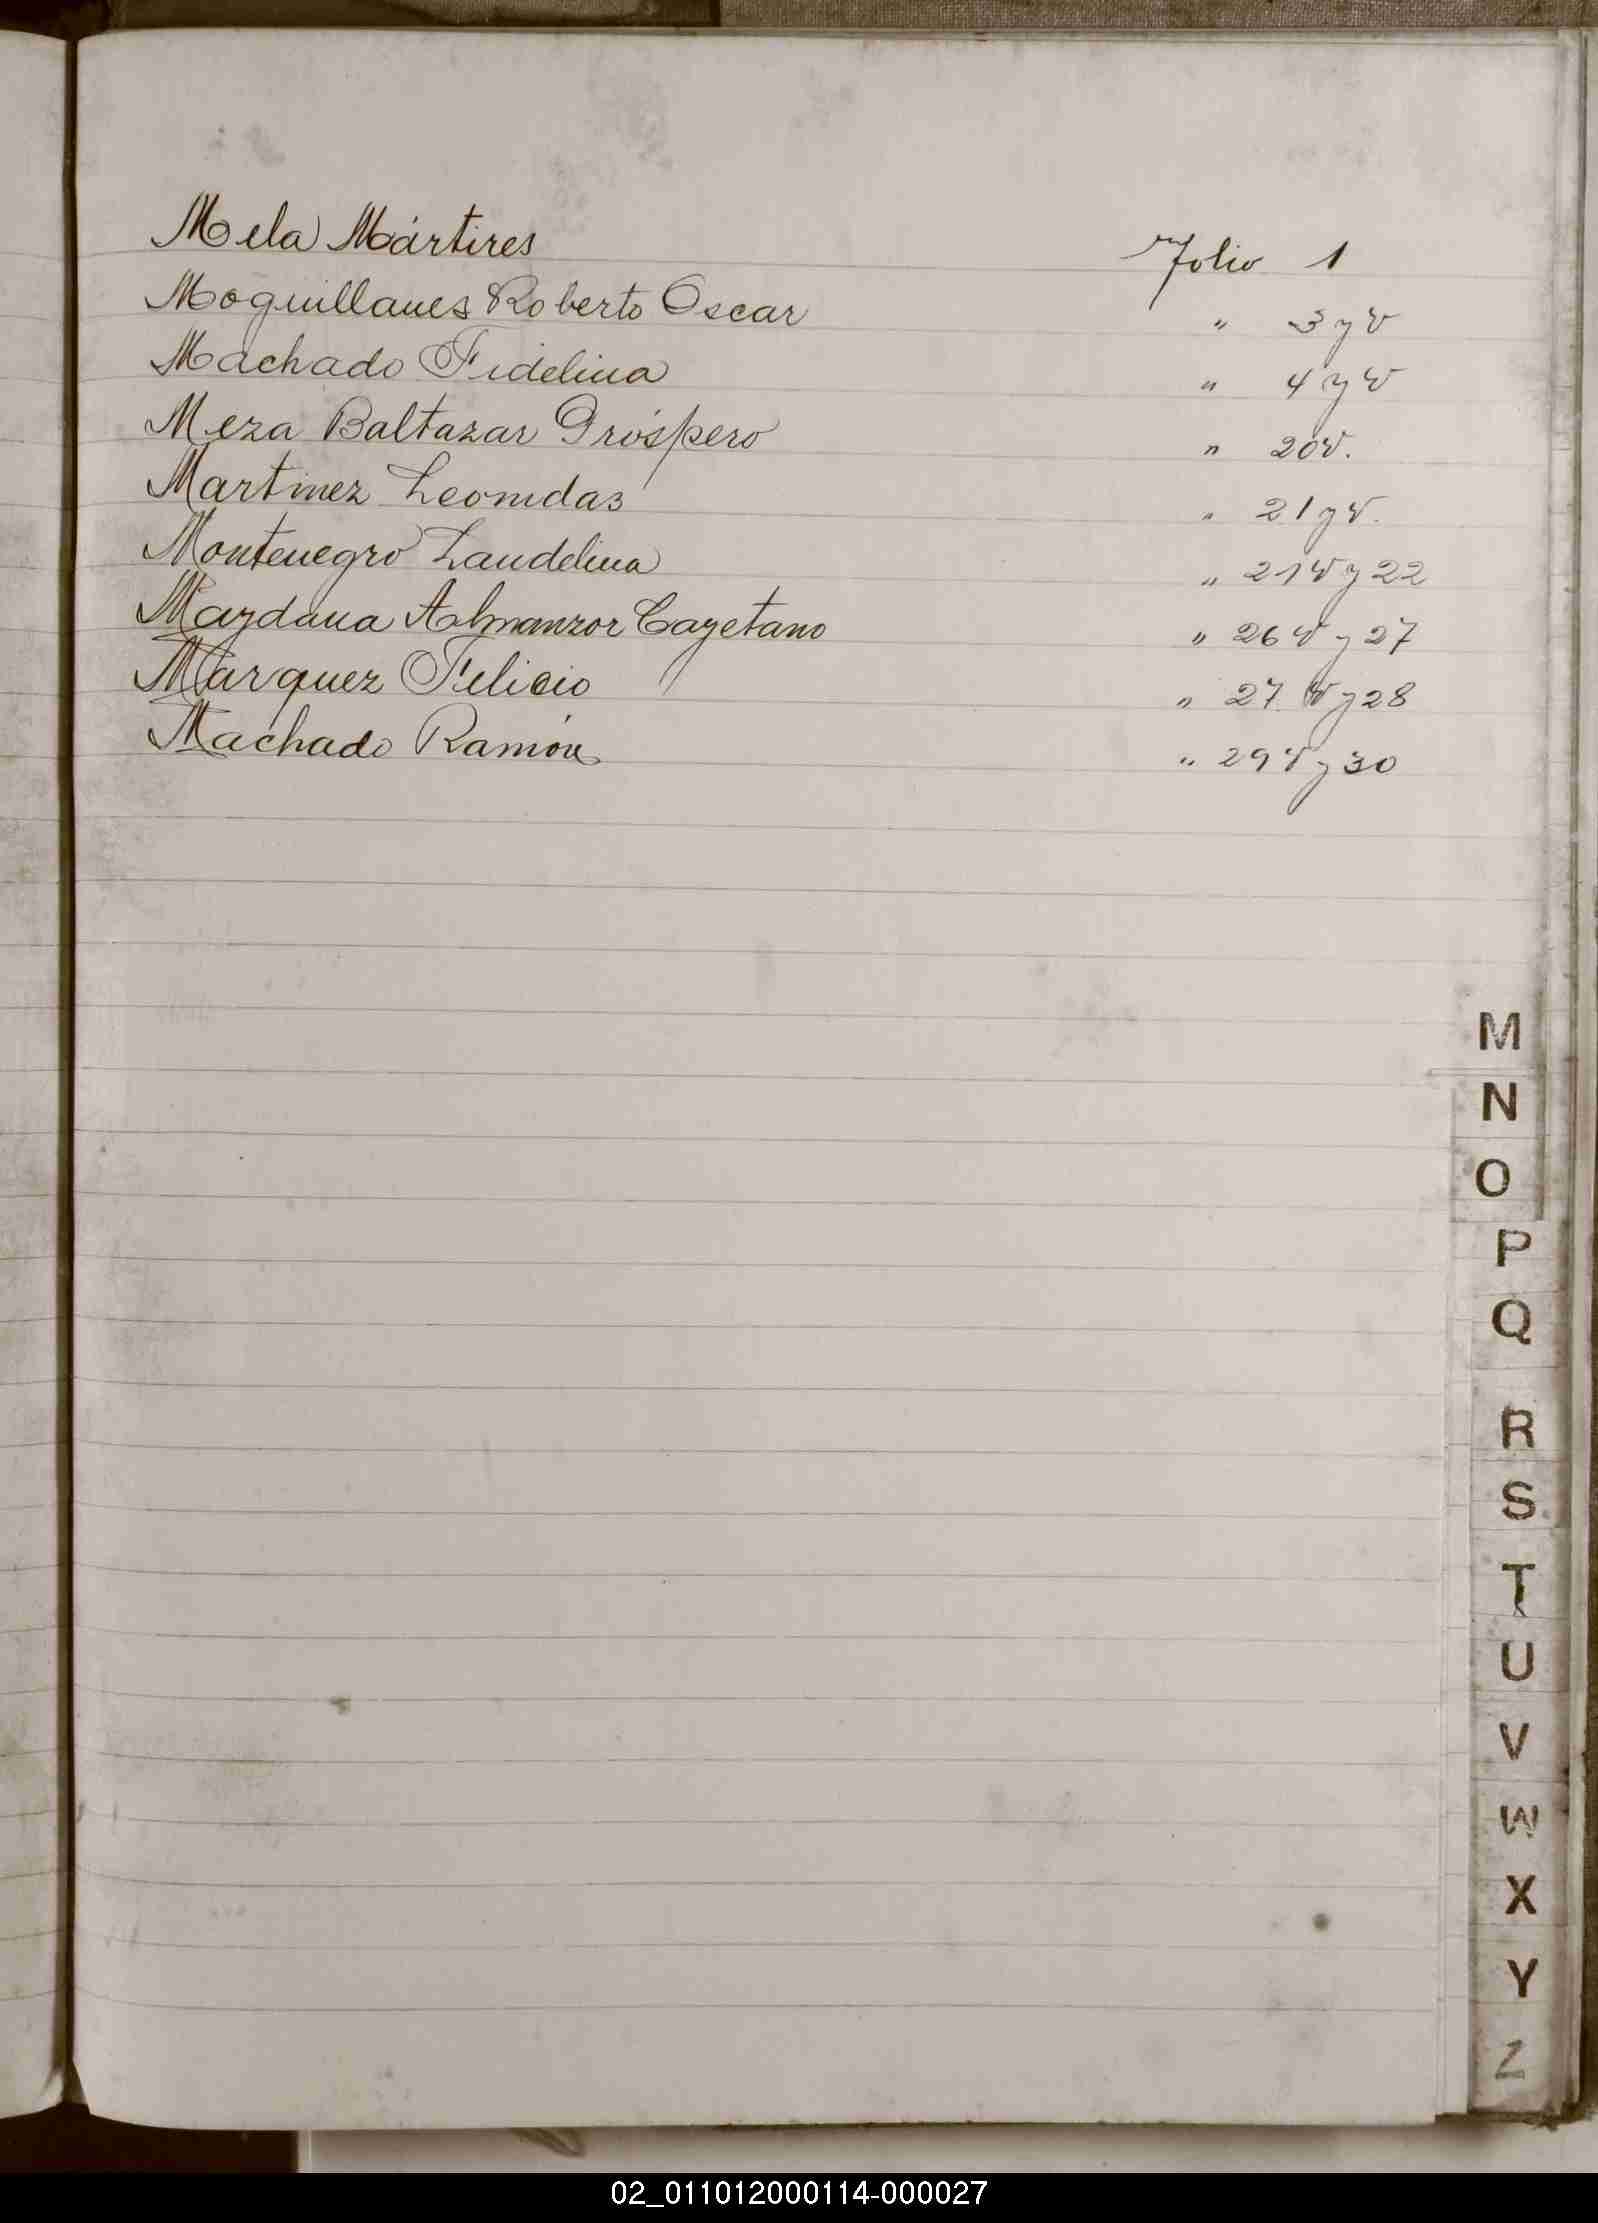 Mela Mártires Folio 1
Moquillanes Roberto Oscar " 3 y v
Machado Fidelina " 4 y v
Meza Baltazar Próspero " 20 v.
Martinez Leonidas " 21 y v.
Montenegro Laudelina " 21 v y 22
Maydana Almanzor Cayetano " 26 v y 27
Marquez Felicio " 27 v y 28
Machado Ramón " 29 v y 30
M
N
O
P
Q
R
S
T
U
V
W
X
Y
Z
02_011012000114-000027